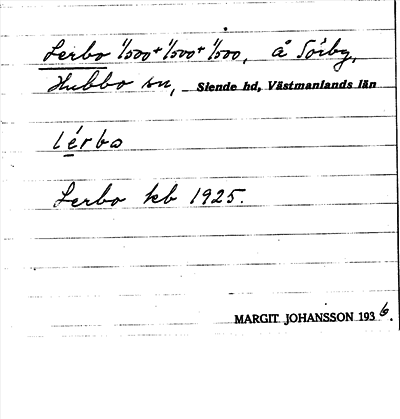 Lerbo 1/500 + 1/500 + 1/500, å Sörby,
Hubbo sn, Siende hd, Västmanlands län
lérbo
Lerbo kb 1925.
MARGIT JOHANSSON 1936.